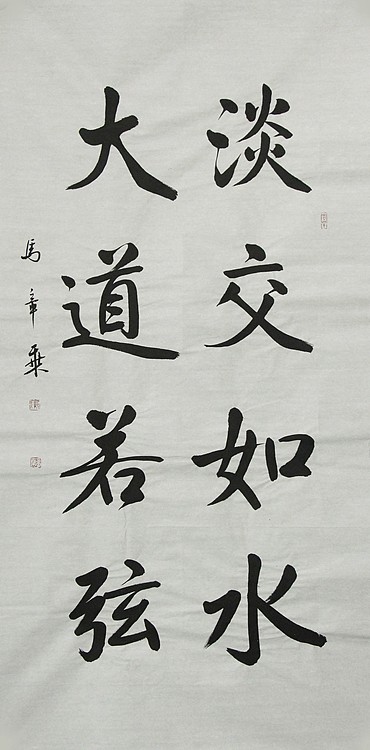 淡交如水
大道若弦
馬章乘